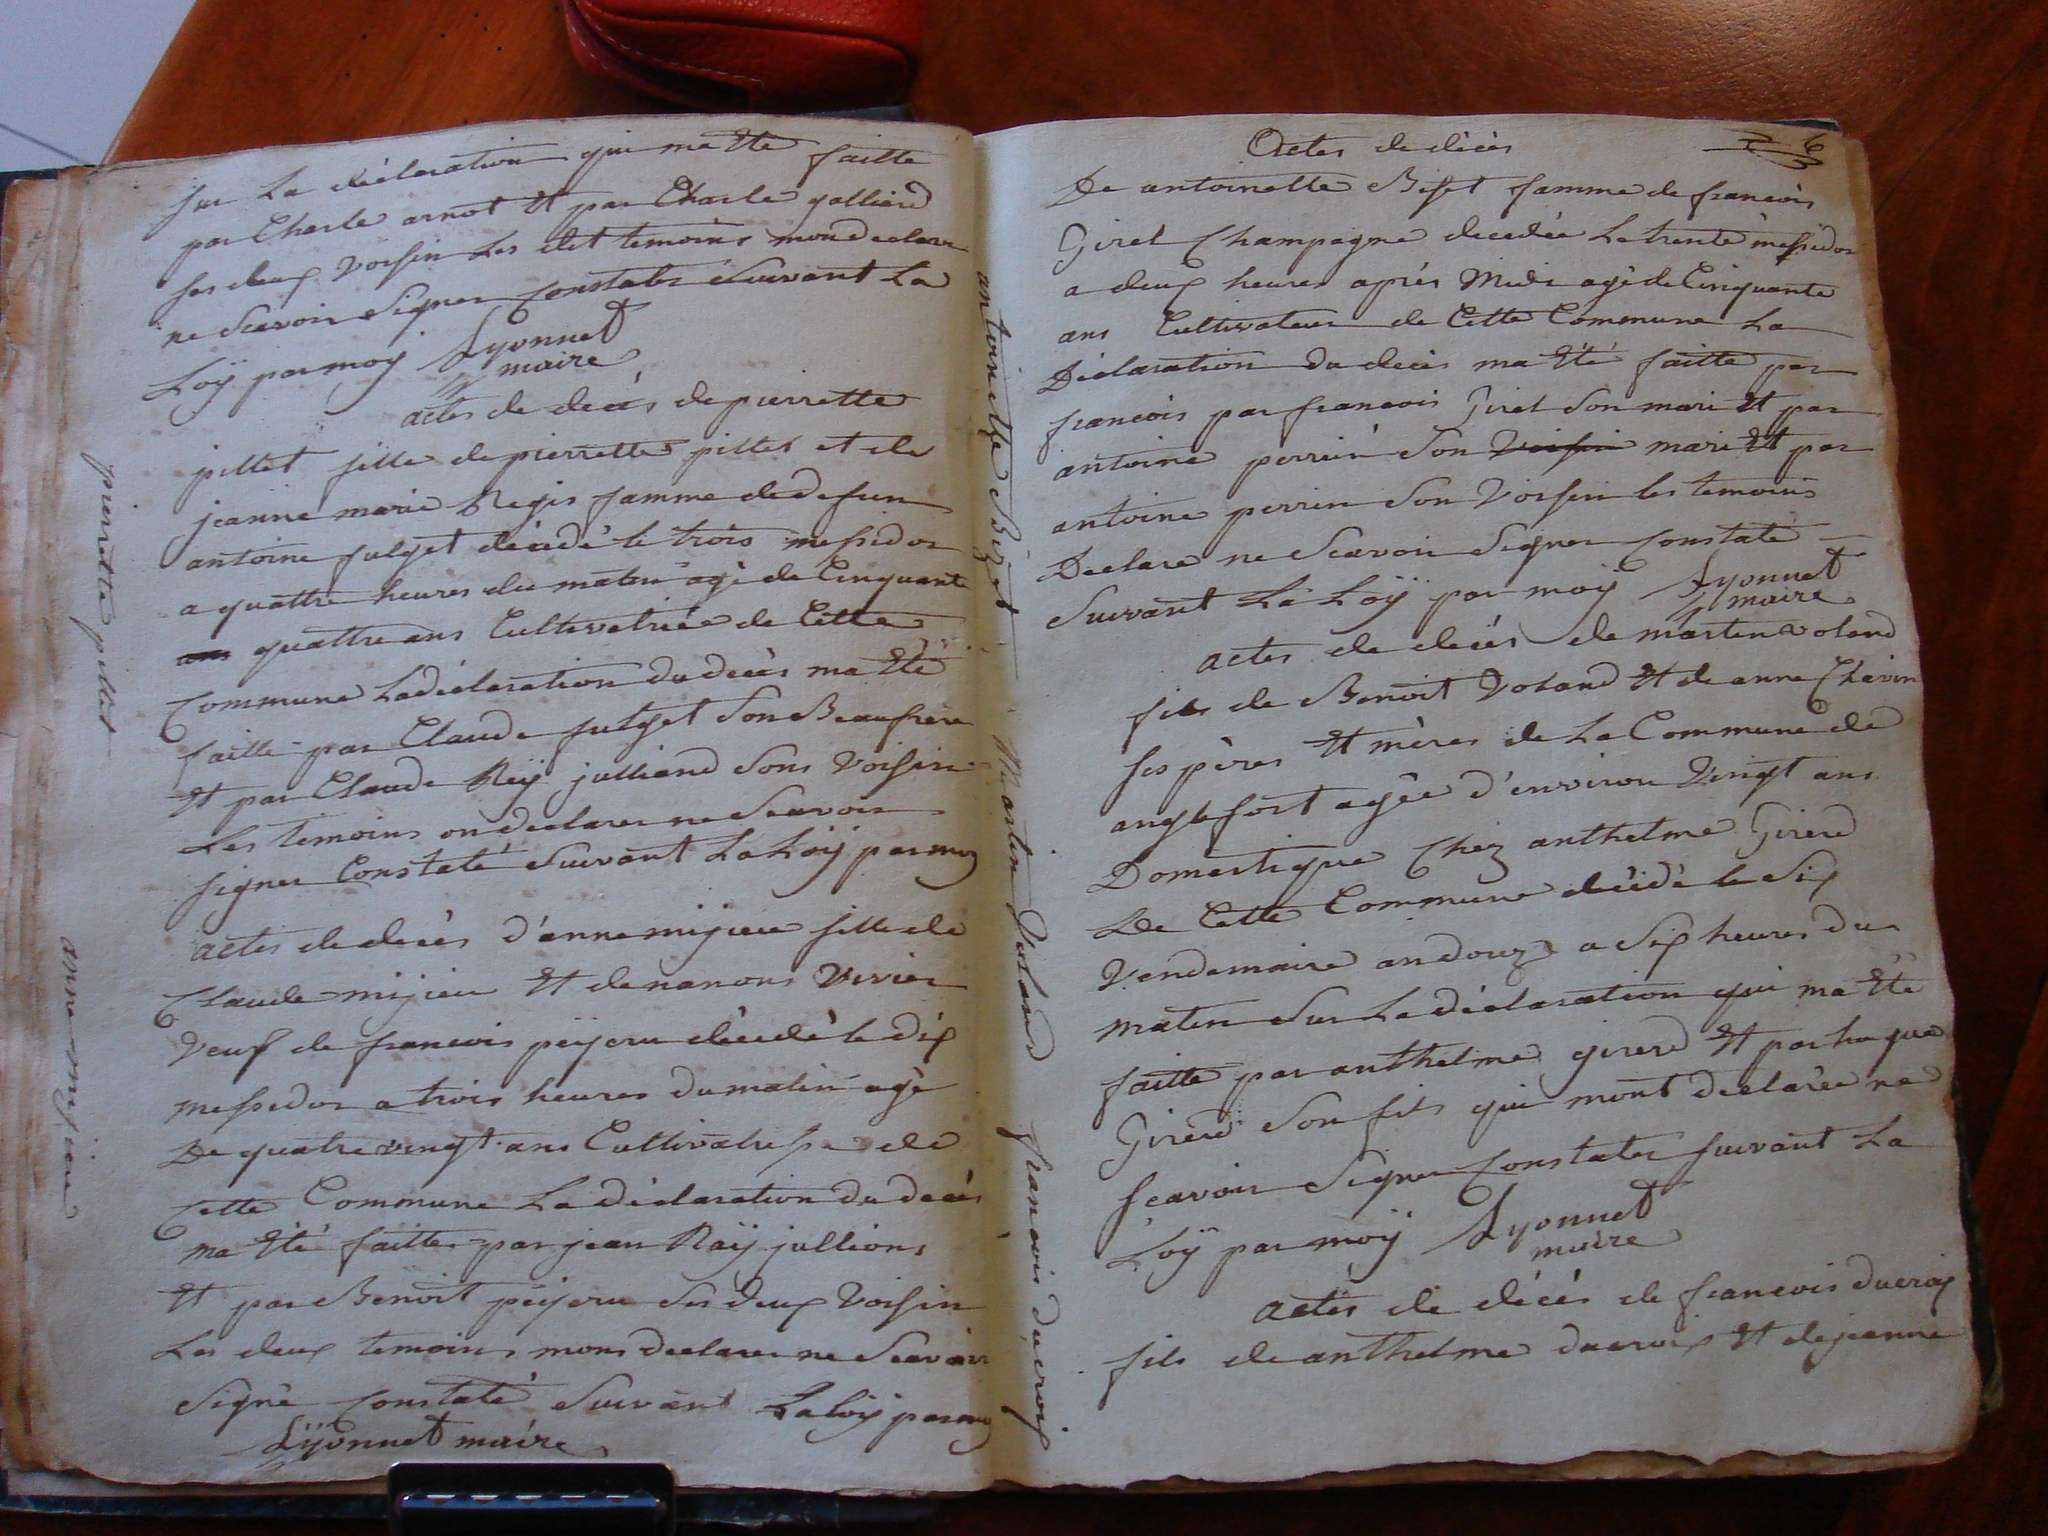 sur La déclaration qui ma Eté faitte
par Charle arnot Et par Charle galliard
ses deux Voisin Les dit temoins mon declare
ne Scavoir Signer Constater Suivant La
Loÿ par moÿ Lyonnet
maire
actes de decés de pierrette
pillet fille de pierrette pillet et de
jeanne marie Regis famme de defun
antoine fulget décédé le trois messidor
a quattre heures du matin agé de Cinquante
ans quattre ans Cultivatrice de Cette
Commune La déclaration du decés ma Eté
faitte par Claude fulget Son Beaufrere
Et par Claude Reÿ julliand Sons Voisin
Les temoins on declarer ne Scavoir
signer Constaté Suivant La Loÿ par moy
actes de decés d'anne mijieu fille de
Claude mijieu Et de nanons Vivier
Veuf de francois peÿeru décédé le dix
messidor a trois heures du matin agé
De quatre vingt ans Cultivatrisse de
Cette Commune La déclaration du decés
ma Eté faitte par jean Raÿ jullions
Et par Benoit peÿeru Ses deux Voisin
Les deux temoins mons declarer ne Scavoir
Signé Constaté Suivant La Loÿ par moy
Lÿonnet maire
pierette pillet
anne mijieu
antoinette Bizet
Martin Voland
francois ducroix
6
Actes de décés
De antoinette Biset famme de francois
Giret Champagne decedée Le trente messidor
a deux heures aprés Midi agé de Cinquante
ans Cultivateur de Cette Commune La
Déclaration du decés ma Eté faitte par
francois par francois Giret Son mari Et par
antoine perrin Son Voisin mari Et par
antoine perrin Son Voisin les temoins
Declare ne Scavoir Signer Constaté
Suivant La Loÿ par moÿ Lyonnet
maire
actes de decés de martin Voland
fils de Benoit Voland Et de anne Chavin
ses péres Et méres de La Commune de
anglefort agée d'environ Vingt ans
Domestique Chez anthelme Girerd
De Cette Commune décédé le Six
Vendemaire an douze a Six heures du
matin Sur La déclaration qui ma Eté
faitte par anthelme girerd Et par hugue
Girerd Son fils qui mont declarée ne
scavoir Signer Constater suivant La
Loÿ par moÿ Lyonnet
maire
actes de décés de francois ducroix
fils de anthelme ducroix Et de jeanne